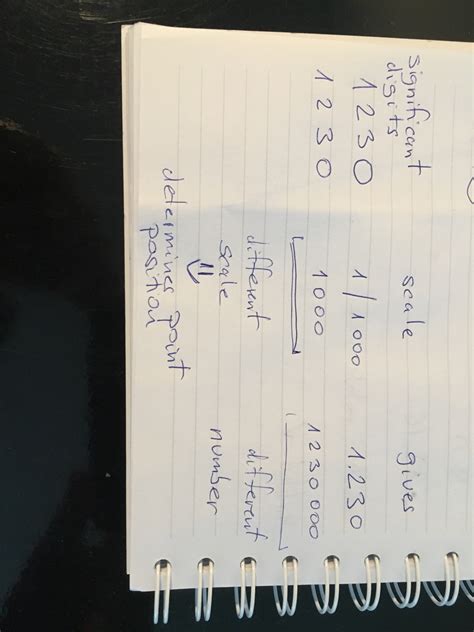 significant digits scale gives
1230 1/1000 1.230
1230 1000 1230000
different different
scale number
⇓
determines point
position